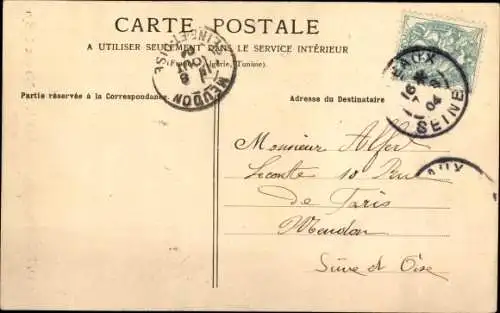 CARTE POSTALE
A UTILISER SEULEMENT DANS LE SERVICE INTÉRIEUR
(France, Algérie, Tunisie).
Partie réservée à la Correspondance
Adresse du Destinataire
MEUDON
SEINE-ET-OISE
EAUX
SEINE
16
04
Monsieur Alfred
Leconte 10 Rue
de Paris
Meudon
Seine et Oise
AUX